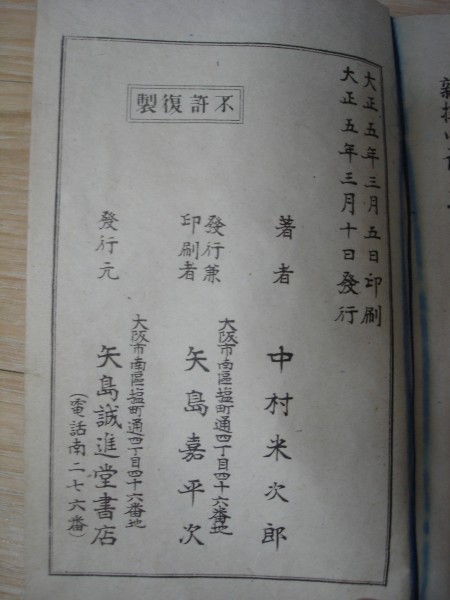 大正五年三月五日印刷
大正五年三月十日發行
不許復製
著者 中村米次郎
發行兼
印刷者
大阪市南區塩町通四丁目四十六番地
矢島嘉平次
發行元
大阪市南區塩町通四丁目四十六番地
矢島誠進堂書店
(電話南二七六番)